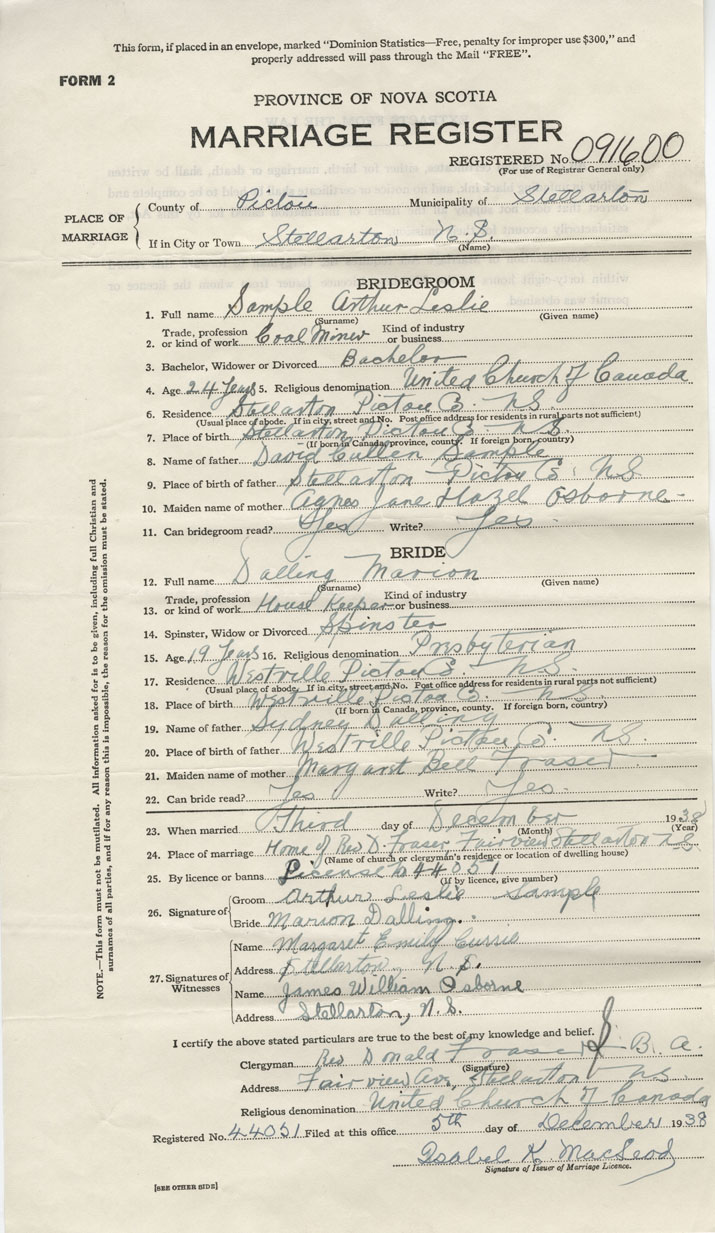 This form, if placed in an envelope, marked "Dominion Statistics—Free, penalty for improper use $300," and
properly addressed will pass through the Mail "FREE".
FORM 2
PROVINCE OF NOVA SCOTIA
MARRIAGE REGISTER
REGISTERED No. 091600
(For use of Registrar General only)
PLACE OF MARRIAGE
County of Pictou Municipality of Stellarton
If in City or Town Stellarton N.S.
(Name)
BRIDEGROOM
1. Full name Sample Arthur Leslie
(Surname) (Given name)
2. Trade, profession or kind of work Coal Miner Kind of industry or business
3. Bachelor, Widower or Divorced Bachelor
4. Age 24 Years 5. Religious denomination United Church of Canada
6. Residence Stellarton Pictou Co. N.S.
(Usual place of abode. If in city, street and No. Post office address for residents in rural parts not sufficient)
7. Place of birth Stellarton Pictou Co. N.S.
(If born in Canada, province, county. If foreign born, country)
8. Name of father David Cullen Sample
9. Place of birth of father Stellarton Pictou Co. N.S.
10. Maiden name of mother Agnes Jane Hazel Osborne
11. Can bridegroom read? Yes Write? Yes
BRIDE
12. Full name Dalling Marion
(Surname) (Given name)
13. Trade, profession or kind of work House Keeper Kind of industry or business
14. Spinster, Widow or Divorced Spinster
15. Age 19 Years 16. Religious denomination Presbyterian
17. Residence Westville Pictou Co. N.S.
(Usual place of abode. If in city, street and No. Post office address for residents in rural parts not sufficient)
18. Place of birth Westville Pictou Co. N.S.
(If born in Canada, province, county. If foreign born, country)
19. Name of father Sydney Dalling
20. Place of father Westville Pictou Co. N.S.
21. Maiden name of mother Margaret Bell Fraser
22. Can bride read? Yes Write? Yes.
23. When married Third day of December 1938
(Month) (Year)
24. Place of marriage Home of Rev D. Fraser Fairview Stellarton N.S.
(Name of church or clergyman's residence or location of dwelling house)
25. By licence or banns License No 44051
(If by licence, give number)
26. Signature of
Groom Arthur Leslie Sample
Bride Marion Dalling.
27. Signatures of Witnesses
Name Margaret Emily Currie
Address Stellarton, N.S.
Name James William Osborne
Address Stellarton, N.S.
I certify the above stated particulars are true to the best of my knowledge and belief.
Clergyman Rev Donald Fraser B. A.
(Signature)
Address Fairview Ave, Stellarton NS
Religious denomination United Church of Canada
Registered No. 44051 Filed at this office 5th day of December 1938
Isabel K. MacLeod
Signature of Issuer of Marriage Licence.
[SEE OTHER SIDE]
NOTE.—This form must not be mutilated. All information asked for is to be given, including full Christian and
surnames of all parties, and if for any reason this is impossible, the reason for the omission must be stated.